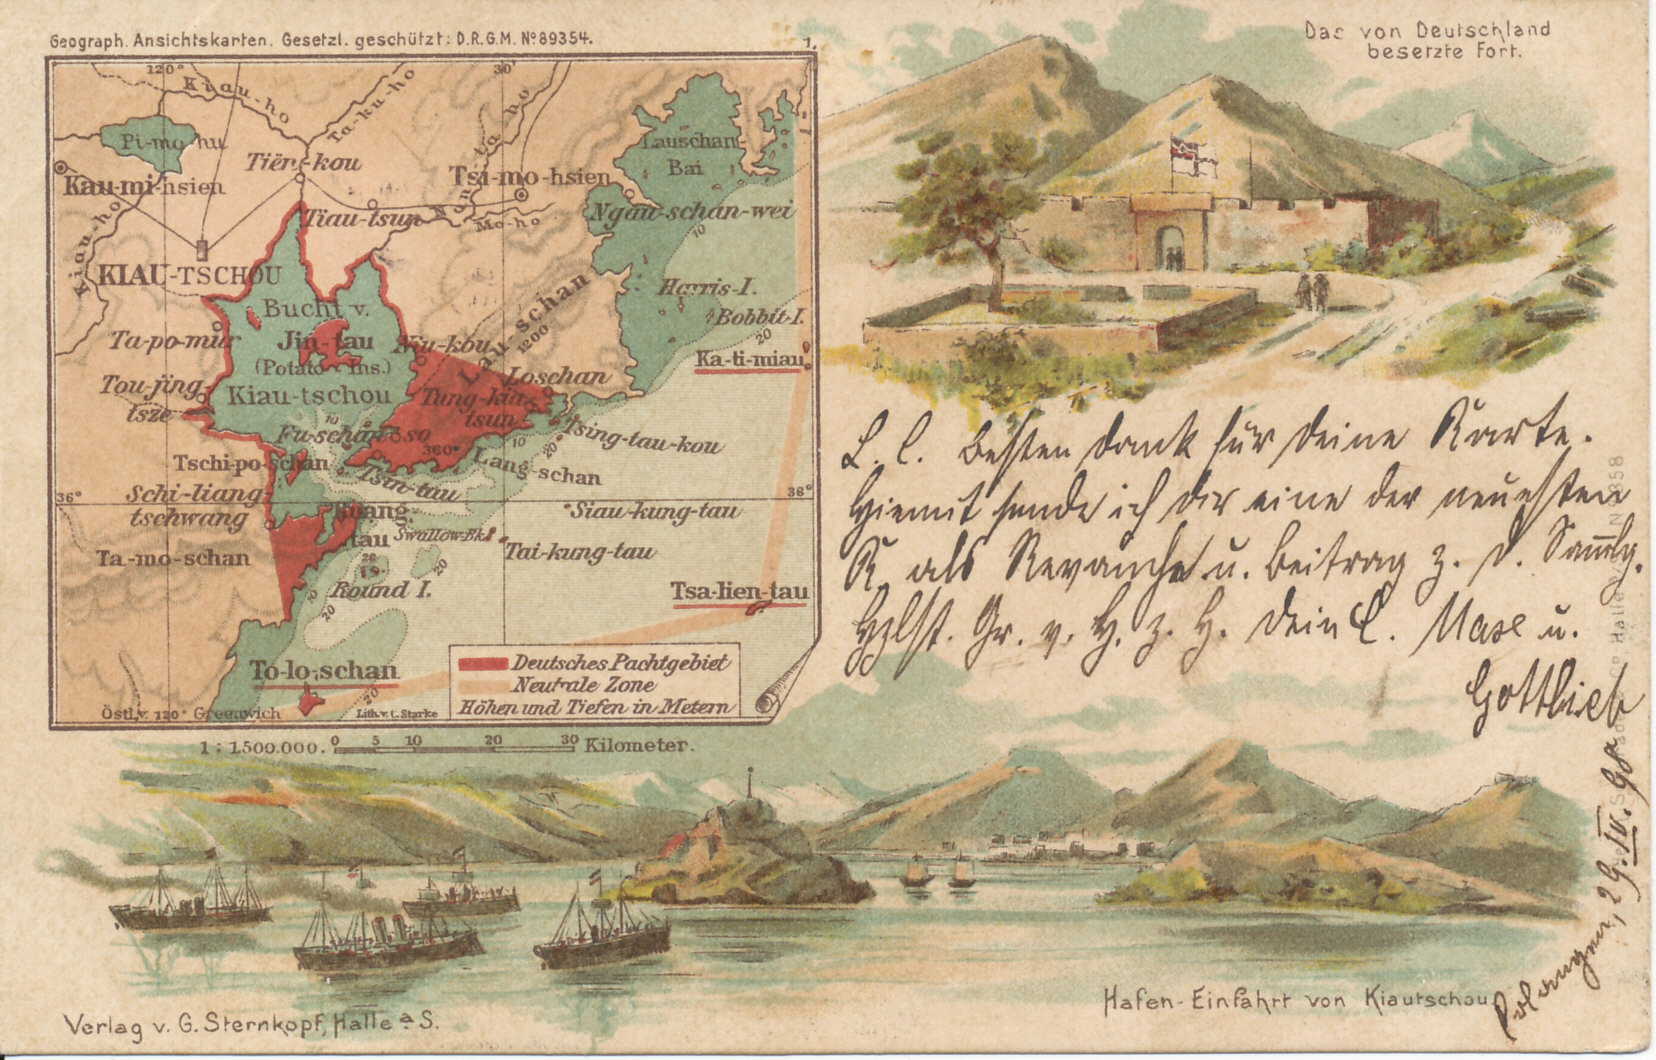 Geograph. Ansichtskarten. Gesetzl. geschützt: D.R.G.M. No 89354.
1.
Das von Deutschland
besetzte Fort.
120°
30'
Kiau-ho
Ta-ku-ho
Pi-mo hu
Tiën-kou
Kau-mi-hsien
Tsi-mo-hsien
Lauschan
Bai
Tiau-tsun
Mo-ho
Ngau-schan-wei
10
Kiau-ho
KIAU-TSCHOU
Bucht v.
Harris-I.
Bobbit-I.
20
Lau-schan
1200
Ta-po-mür
Jin-tau
Nu-kou
(Potato Ins.)
Ka-ti-miau
Tou-jing-
tsze
Kiau-tschou
Loschan
Tung-kia-
tsun
10
Fu-schan-so
360
10
20
Tsing-tau-kou
Tschi-po-schan
Tsin-tau
Lang-schan
36°
36°
Schi-liang-
tschwang
Huang-
tau
Siau-kung-tau
Swallow-Bk.
Ta-mo-schan
Tai-kung-tau
20
Round I.
10
20
Tsa-lien-tau
To-lo-schan
20
Deutsches Pachtgebiet
Neutrale Zone
Höhen und Tiefen in Metern
Östl. v. 120° Greenwich
Lith. v. L. Starke
1 : 1.500.000. 0 5 10 20 30 Kilometer.
L. C. Besten Dank für Deine Karte.
Hiemit sende ich Dir eine der neuesten
K. als Revanche u. Beitrag z. D. Sammlg.
Hzlst. Gr. v. H. z. H. Dein C. Mase u.
Gottlieb
29. IV. 98
Hafen-Einfahrt von Kiautschou
Verlag v. G. Sternkopf, Halle a S.